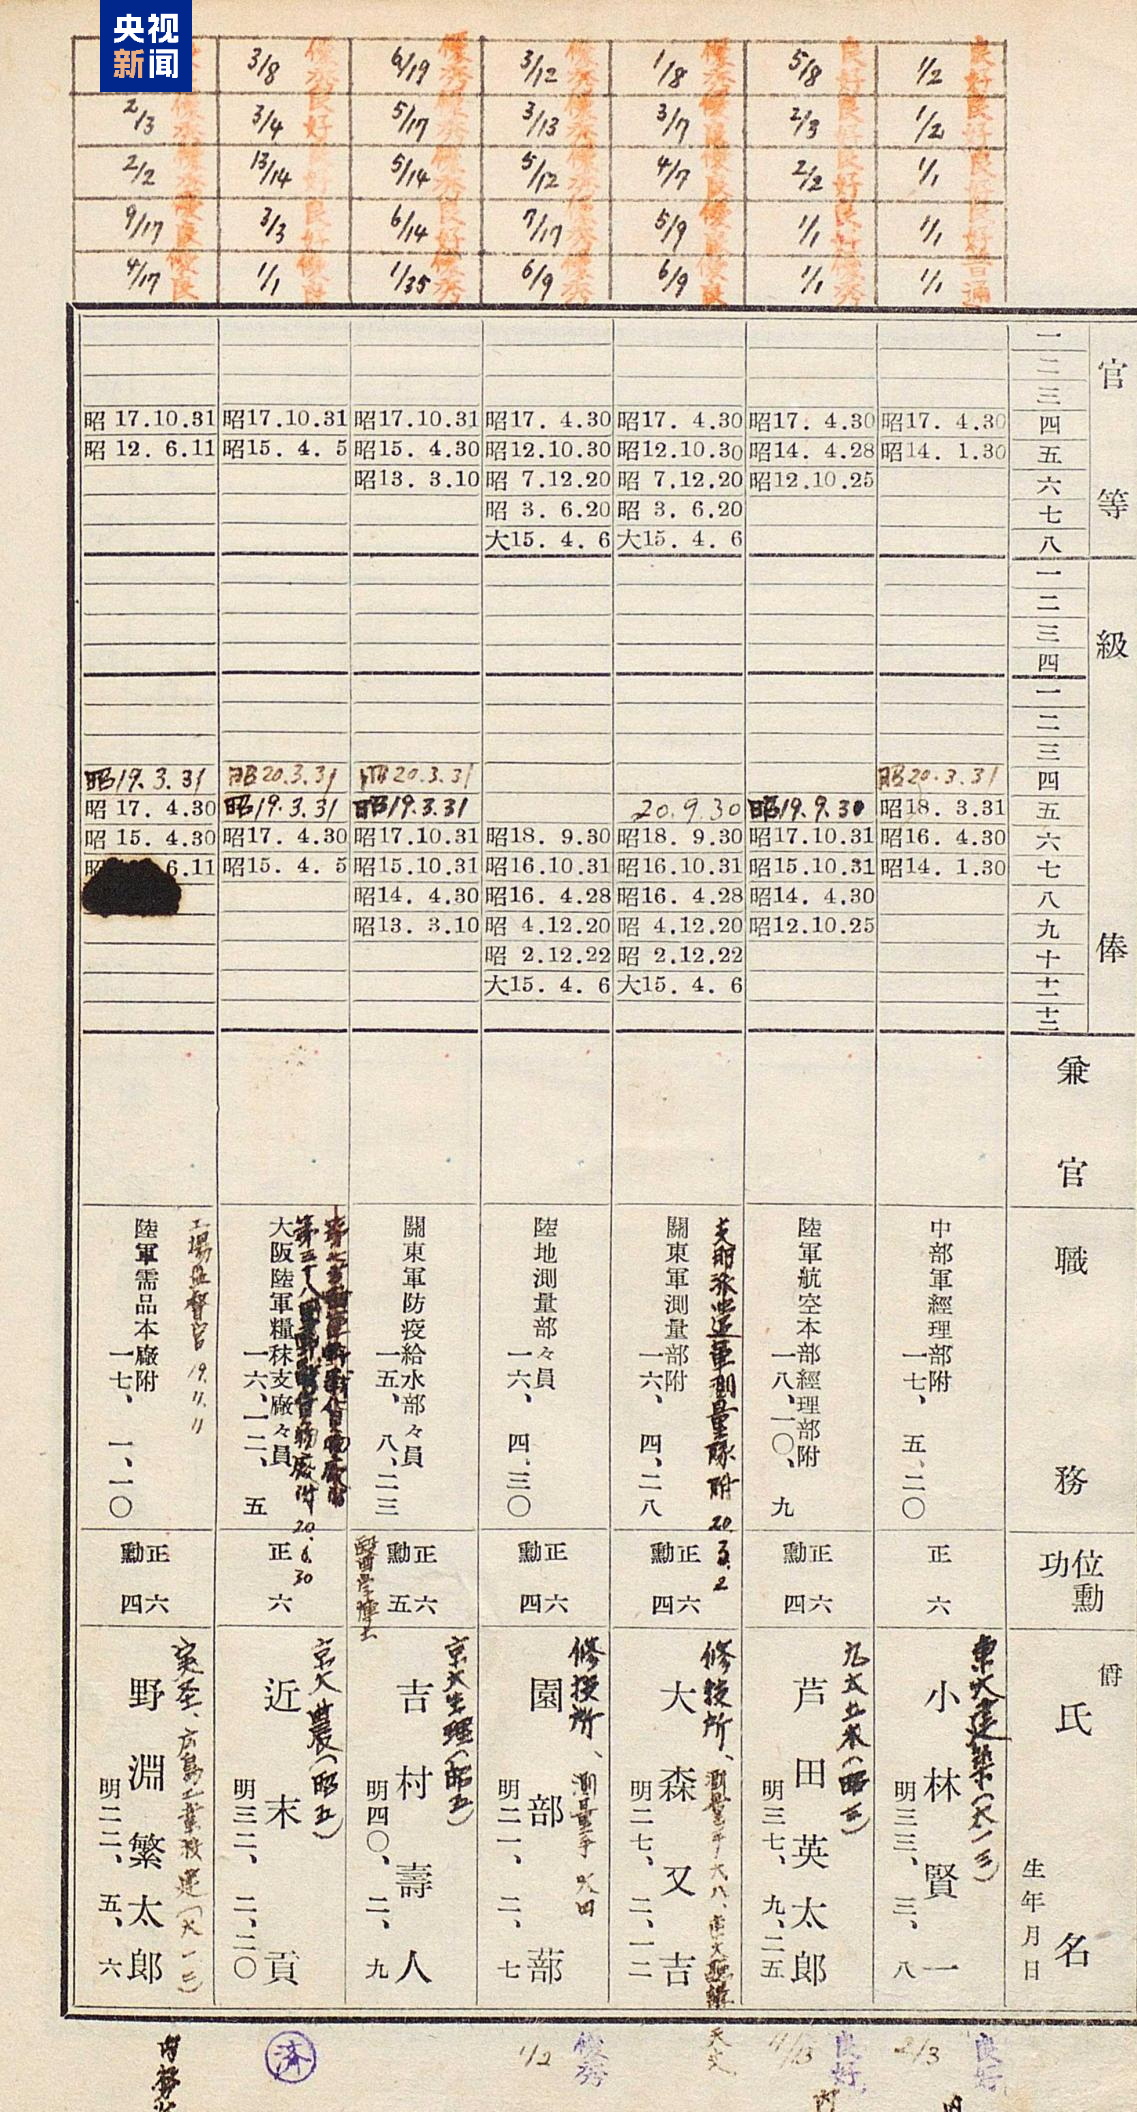 央视
新闻
良好
1/2
良好
1/2
良好
1/1
良好
1/1
普通
1/1
良好
5/8
良好
2/3
良好
2/2
良好
1/1
優秀
1/1
優秀
1/8
優良
3/7
優良
4/7
優良
5/9
優良
6/9
優秀
3/12
優秀
3/13
優秀
5/12
優秀
7/17
優秀
6/9
優秀
6/19
優秀
5/17
優秀
5/14
良好
6/14
優秀
1/35
優秀
3/8
良好
3/4
良好
13/14
良好
3/3
優良
1/1
優秀
2/3
優秀
2/2
優良
9/17
優良
4/17
官等
一
二
三
四
五
六
七
八
級俸
一
二
三
四
一
二
三
四
五
六
七
八
九
十
十一
十二
兼官
職務
位勳功
爵
氏名
生年月日
昭17. 4.30
昭14. 1.30
昭20.3.31
昭18. 3.31
昭16. 4.30
昭14. 1.30
中部軍經理部附
一七、五、二〇
正六
東大建築(大一三)
小林賢一
明三三、三、八
昭17. 4.30
昭14. 4.28
昭12.10.25
昭19.9.30
昭17.10.31
昭15.10.31
昭14. 4.30
昭12.10.25
陸軍航空本部經理部附
一八、一〇、九
正六
勳四
九大土木(昭三)
芦田英太郎
明三七、九、二五
昭17. 4.30
昭12.10.30
昭 7.12.20
昭 3. 6.20
大15. 4. 6
20.9.30
昭18. 9.30
昭16.10.31
昭16. 4.28
昭 4.12.20
昭 2.12.22
大15. 4. 6
支那派遣軍測量隊附 20.3.2
關東軍測量部附
一六、四、二八
正六
勳四
修技所、
大森又吉
明二七、二、一二
昭17. 4.30
昭12.10.30
昭 7.12.20
昭 3. 6.20
大15. 4. 6
昭18. 9.30
昭16.10.31
昭16. 4.28
昭 4.12.20
昭 2.12.22
大15. 4. 6
陸地測量部々員
一六、四、三〇
正六
勳四
修技所、測量手
園部蔀
明二一、二、七
昭17.10.31
昭15. 4.30
昭13. 3.10
昭20.3.31
昭19.3.31
昭17.10.31
昭15.10.31
昭14. 4.30
昭13. 3.10
關東軍防疫給水部々員
一五、八、二三
正六
勳五
醫學博士
京大生理(昭五)
吉村壽人
明四〇、二、九
昭17.10.31
昭15. 4. 5
昭20.3.31
昭19.3.31
昭17. 4.30
昭15. 4. 5
大阪陸軍糧秣支廠々員
一六、一二、五
20.6.30
正六
京大農(昭五)
近末貢
明三二、二、二〇
昭 17.10.31
昭 12. 6.11
昭19.3.31
昭 17. 4.30
昭 15. 4.30
6.11
工場監督官 19.11.11
陸軍需品本廠附
一七、一、一〇
正六
勳四
野淵繁太郎
明二二、五、六
良好
2/3
良好
4/13
天文
優秀
1/2
済